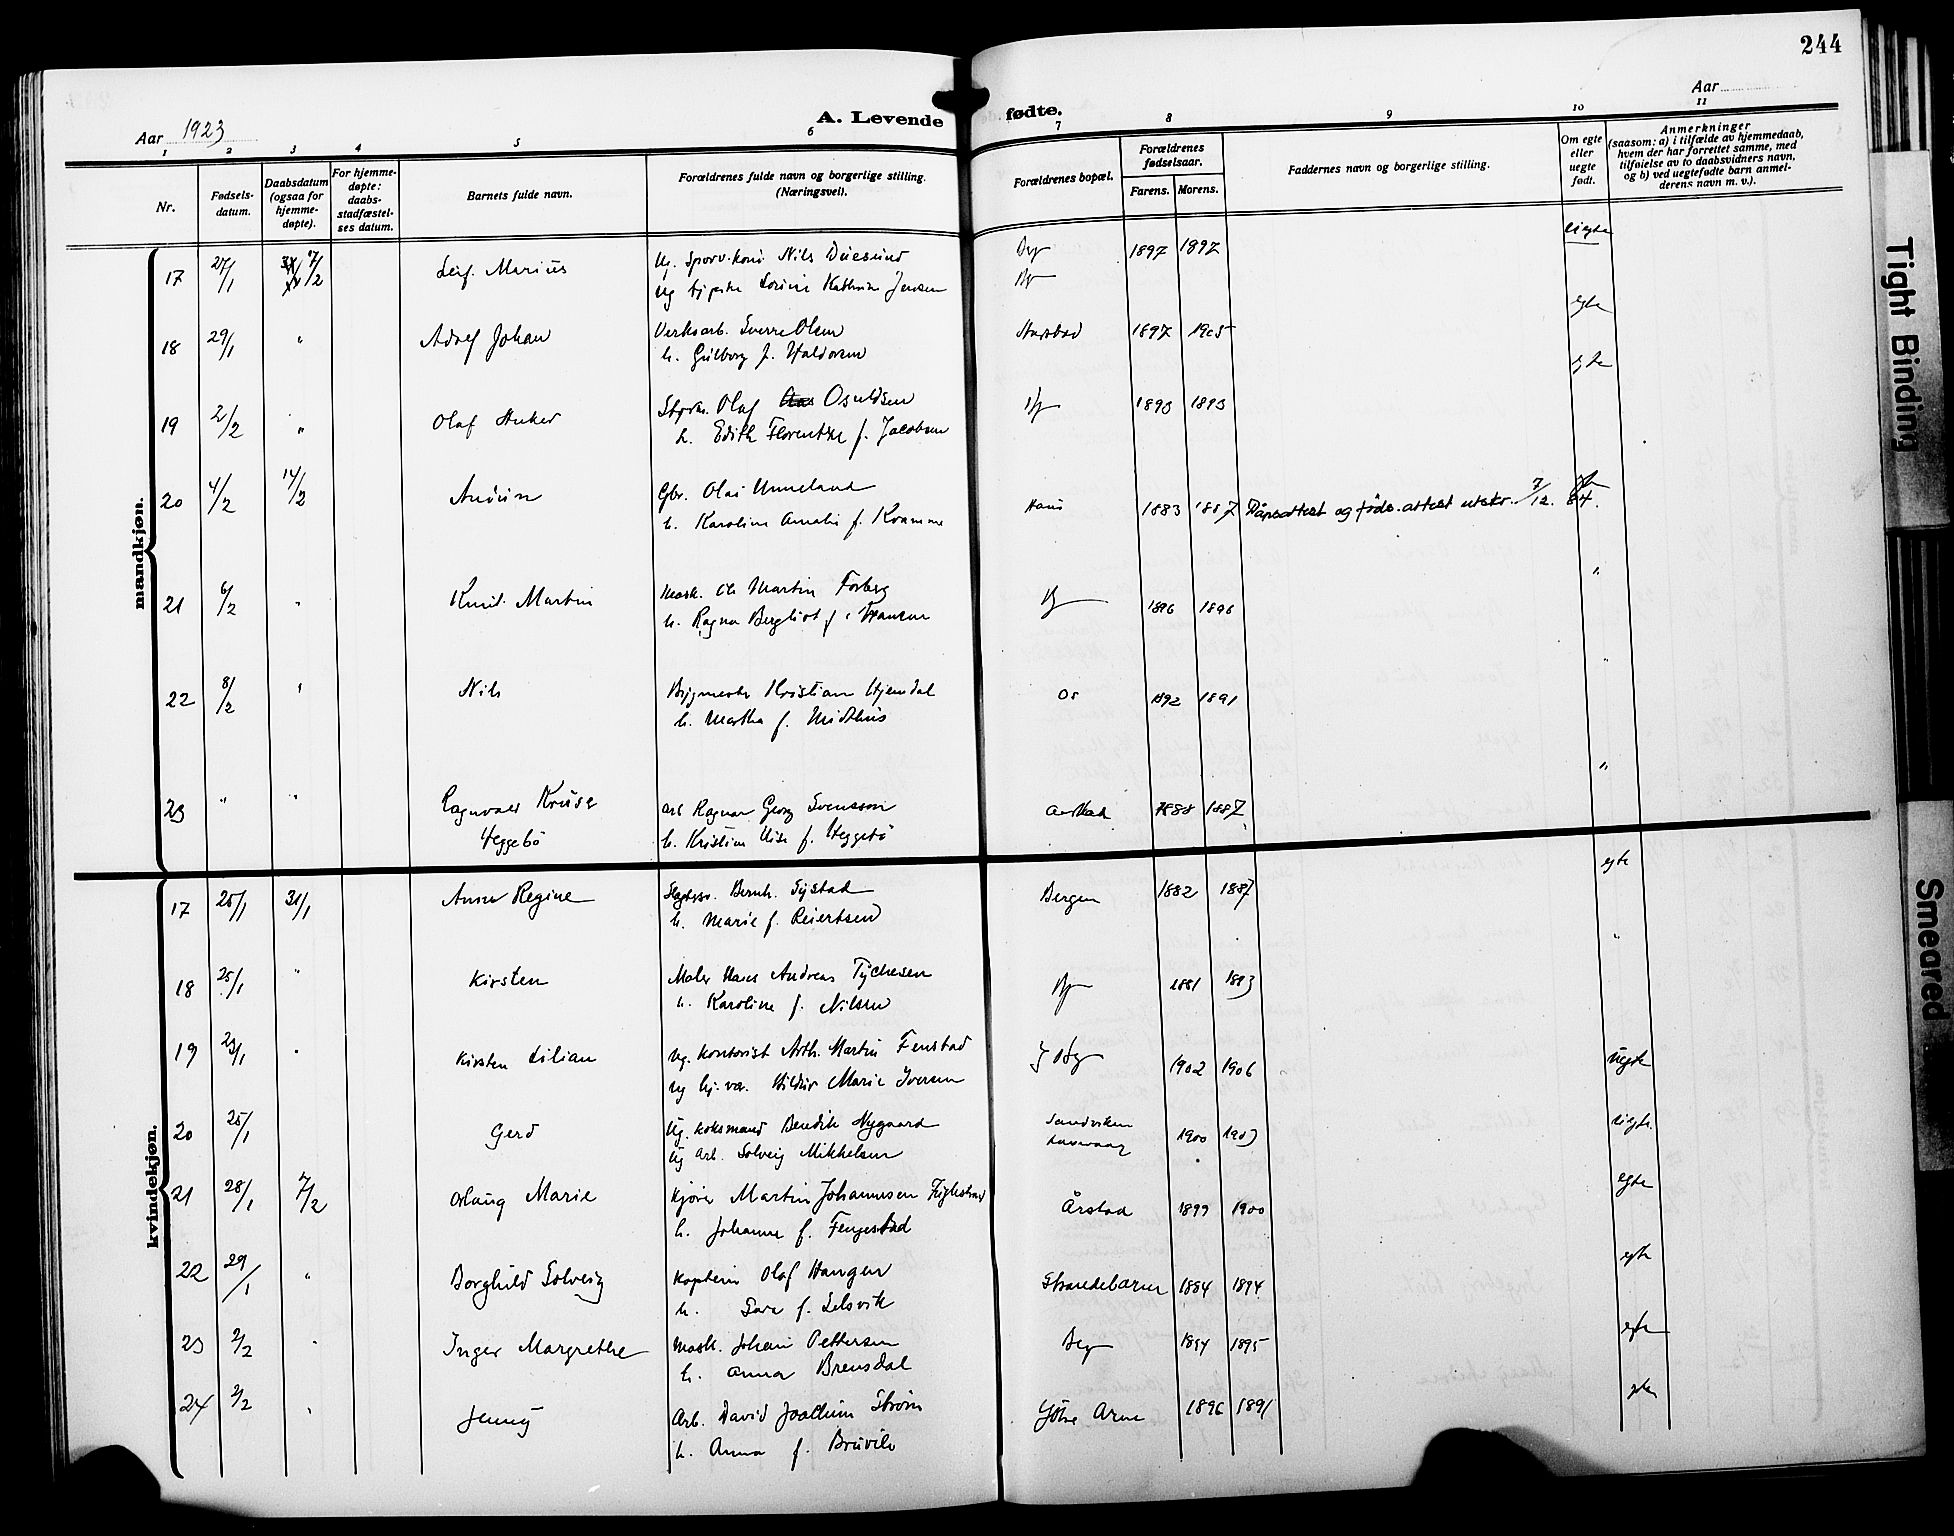 244
Aar 1923
A. Levende fødte.
Aar
1 2 3 4 5 6 7 8 9 10 11
Nr.
Fødsels-
datum.
Daabsdatum
(ogsaa for
hjemme-
døpte).
For hjemme-
døpte:
daabs-
stadfæstel-
ses datum.
Barnets fulde navn.
Forældrenes fulde navn og borgerlige stilling.
(Næringsvei).
Forældrenes bopæl.
Forældrenes
fødselsaar.
Farens. Morens.
Faddernes navn og borgerlige stilling.
Om egte
eller
uegte
født.
Anmerkninger
(saasom: a) i tilfælde av hjemmedaab,
hvem der har forrettet samme, med
tilføielse av to daabsvidners navn,
og b) ved uegtefødte barn anmel-
derens navn m. v.).
mandkjøn.
17 27/1 7/2 Leif Marius Ug. Nils Duesund 1897 1897 uegte
Ug Kathrine Jensen
18 29/1 " Adolf Johan Verksarb. Sverre Olsen 1897 1905 egte
h. Gulborg f. Haldorsen
19 2/2 " Olaf Olaf Osvldsen 1893 1893 egte
h. Edith f. Jacobsen
20 4/2 14/2 Gbr. Olai Unneland Haus 1883 1887 Dåpsattest og føds.attest utskr. 7/12. 84.
h. Karoline Amalie f. Kvamme
21 6/2 " Knut Martin Mask. Martin Forberg 1896 1896 "
h. Ragna Bergliot f.
22 8/2 " Nils Bygmester Kristian Hjemdal Os 1892 1891 "
h. Martha f. Midthus
23 " " Ragnvald Kruse Arb Ragnar Georg Svensson Aarstad 1888 1887 "
Heggebø h. Kristine f. Heggebø
kvindekjøn.
17 25/1 31/1 Anna Regine Bernh. Systad Bergen 1882 1887 egte
h. Marie f. Reiertsen
18 25/1 " Kirsten Maler Hans Andreas Tychesen 1881 1893 "
h. Karoline f. Nilsen
19 23/1 " Kirsten Lilian Ug. kontorist Arth. Martin Fenstad 1902 1906 uegte
ug Marie Iversen
20 25/1 Gerd Ug. koksmand Bendik Nygaard Sandviken 1900 1903 uegte.
ug arb. Solveig Mikkelsen
21 28/1 7/2 Aslaug Marie Kjører Martin Johannesen Årstad 1899 1900 egte
h. Johanna f. Fengestad
22 29/1 " Borghild Solveig Kaptein Olaf Haugen 1884 1894 egte
h. Sara f. Selsvik
23 2/2 " Inger Margrethe Mask. Johan Pettersen 1894 1895 egte
h. Anna Brensdal
24 2/2 " Jenny Arb. David Joachim Strøm Ytre Arne 1896 1891 egte
h. Anna f. Bruvik
Tight Binding
Smeared